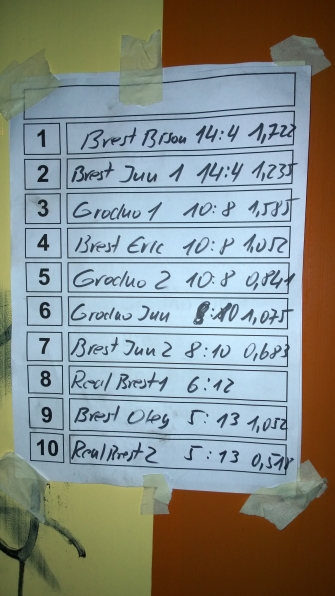 1 Brest Bison 14:4 1,722
2 Brest Jun 1 14:4 1,235
3 Grodno 1 10:8 1,585
4 Brest Eric 10:8 1,052
5 Grodno 2 10:8 0,841
6 Grodno Jun 8:10 1,075
7 Brest Jun 2 8:10 0,683
8 Real Brest 1 6:12
9 Brest Oleg 5:13 1,052
10 Real Brest 2 5:13 0,518